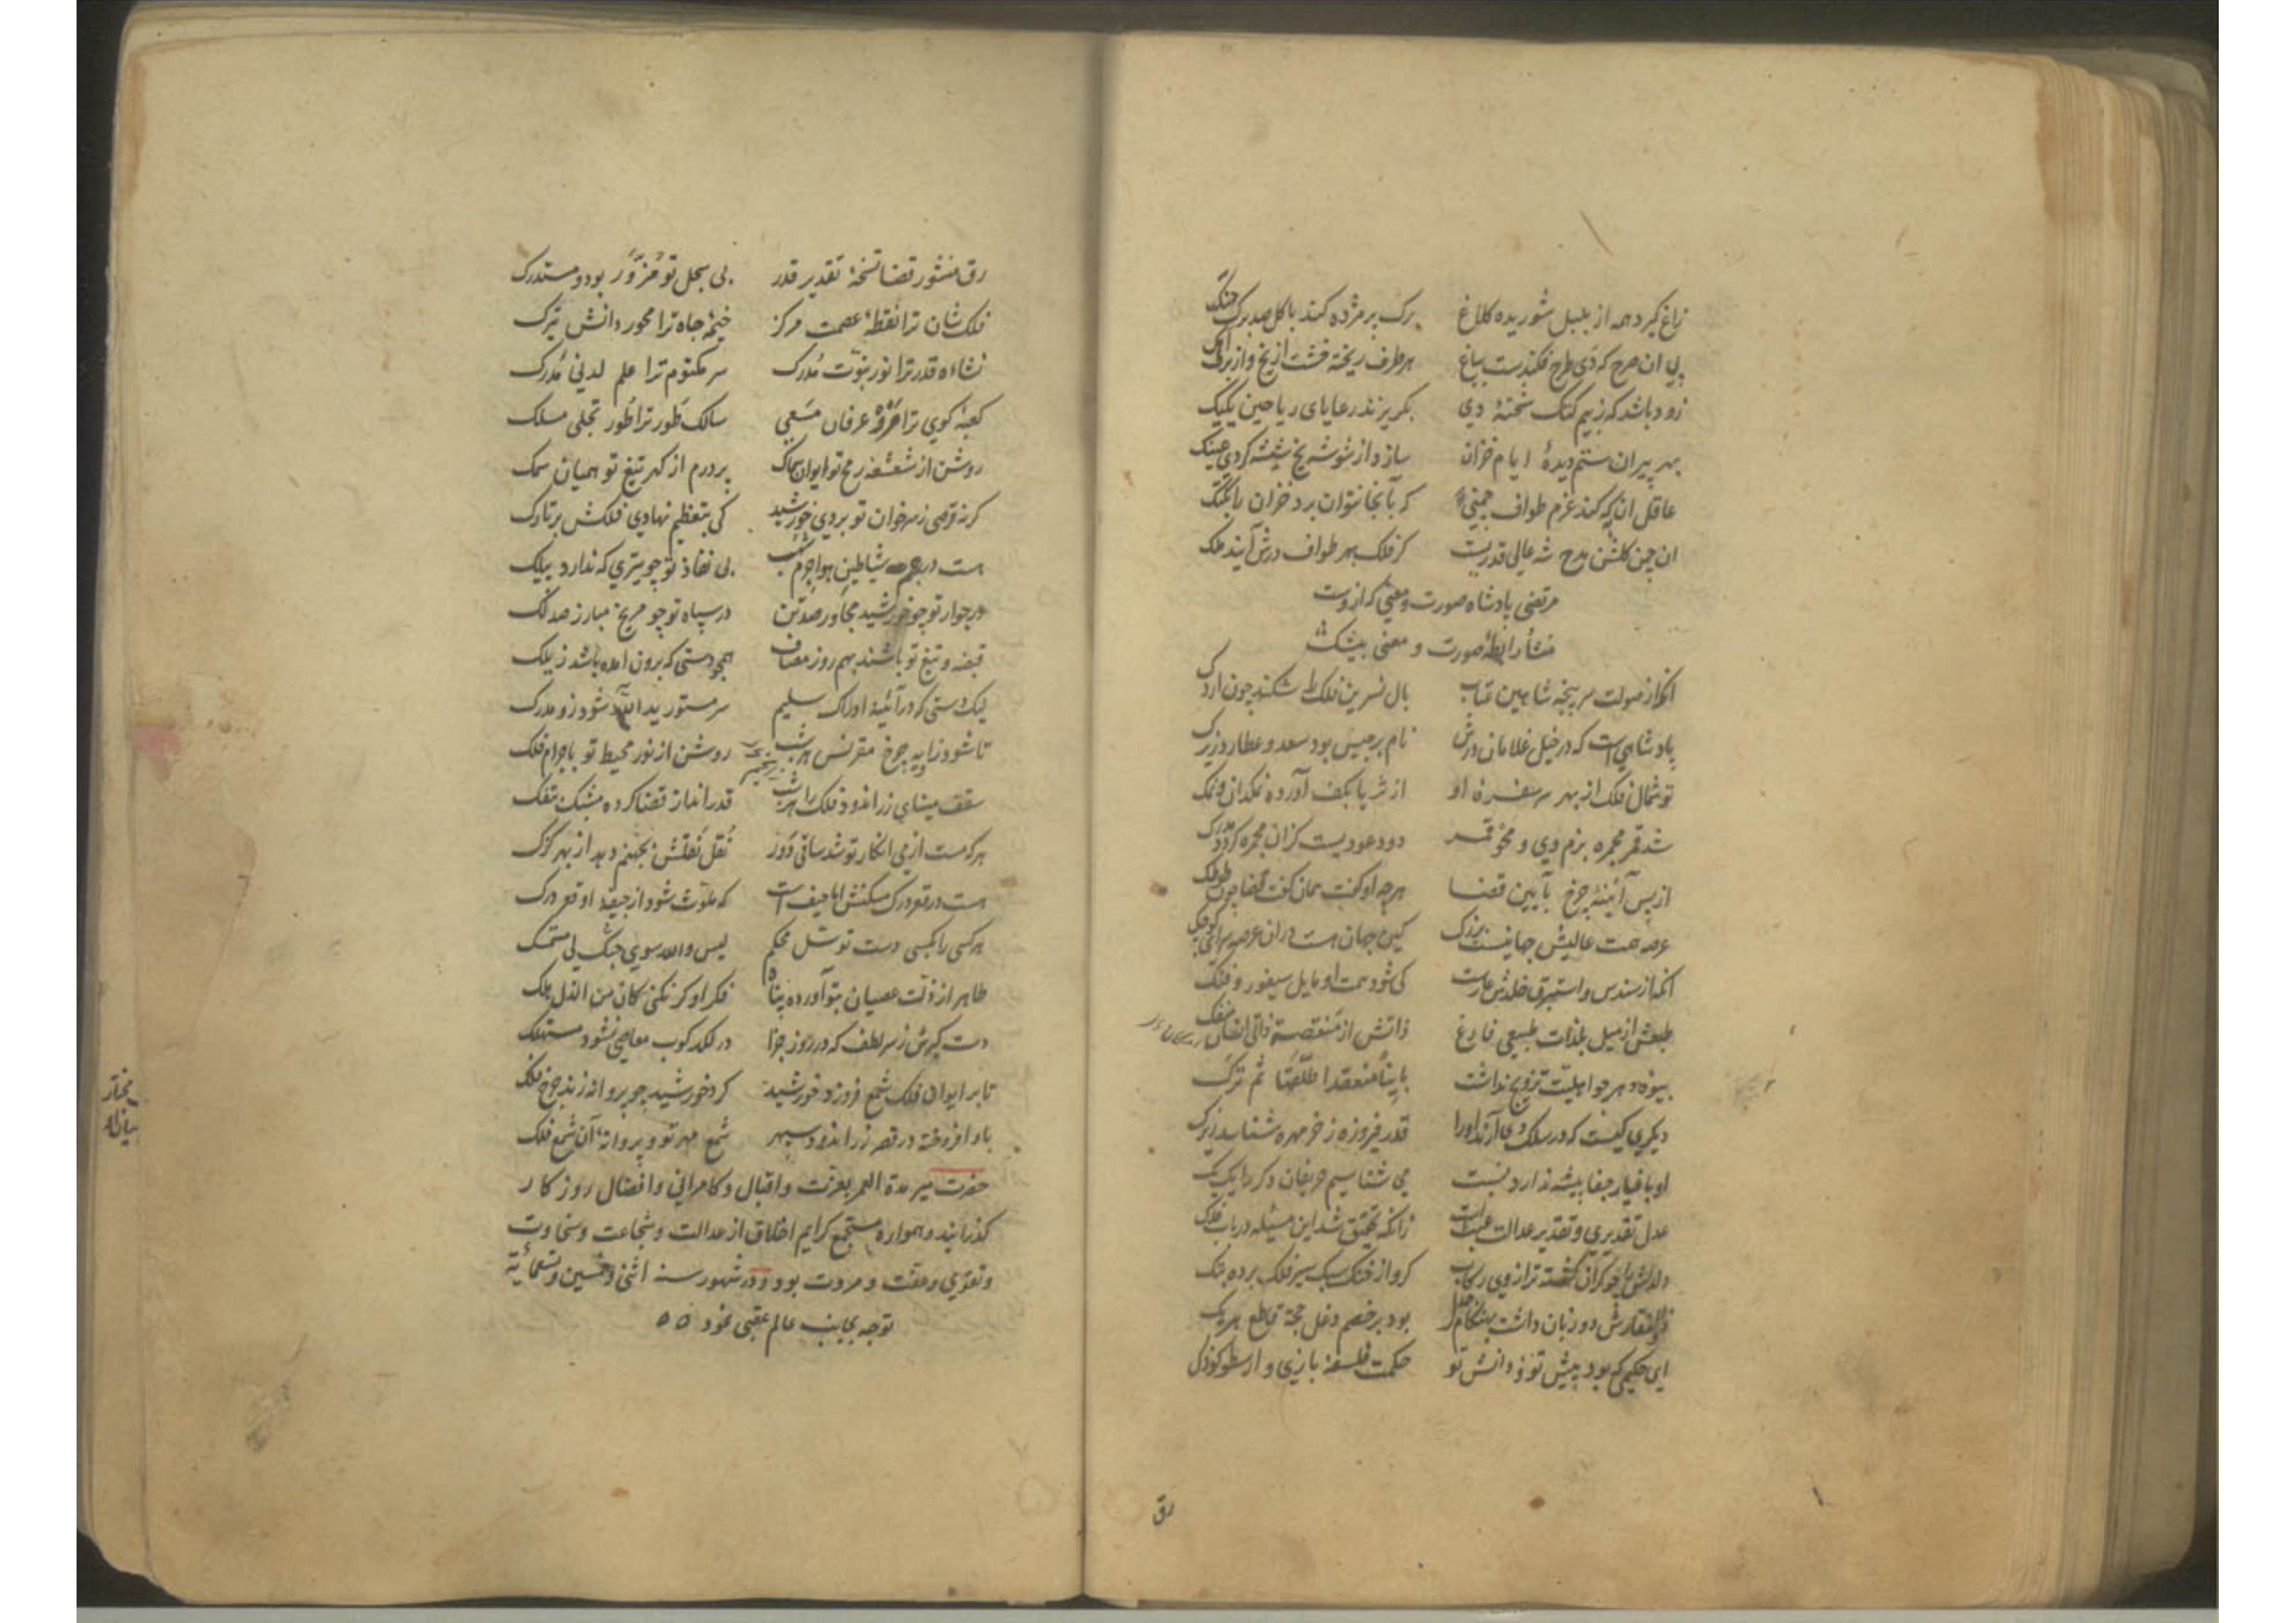 زاغ گیرد همه از بلبل شوریده کلاغ برک بر مژده کند با کل صد برک جنک
پی ان طرح که دی طرح فکندست بباغ هر طرف ریخته خشت از یخ و از برف
زود باشد که ز بیم کتک شحنهٔ دی بکریزند رعایای ریاحین یکیک
بهر پیران ستم دیدهٔ ایام خزان سازد از شوشه یخ شیشه کر دی عینک
عاقل ان به که کند عزم طواف چمنی که بآنجا نتوان برد خزان را بکتک
ان چمن کلشن مدح شه عالی قدریست کز فلک بهر طواف درش آیند ملک
مرتضی پادشاه صورت و معنی که ازوست
منشأ رابطهٔ صورت و معنی بیشک
انکه از صولت سرپنجه شاهین عتاب بال نسرین فلک را شکند چون اردک
پادشاهی است که در خیل غلامان درش نام برجیس بود سعد و عطارد زیرک
توشمال فلک از بهر سر سفره او از ثریا بکف آورده نمکدان و نمک
شد قمر مجمره بزم وی و محو قمر دود عودیست کزان مجمره کرد
از پس آئینهٔ چرخ بآیین قضا هرچه او کفت همان کفت قضا چون طوطک
عرصه همت عالیش جهانیست بزرک کین جهان هست دران عرصه سرائی کوچک
انکه از سندس و استبرق خلدش عارست کی شود همت او مایل سیفور و فنک
طبعش از میل بلذات طبیعی فارغ ذاتش از منقصت ذاتی انسان منفک
بیوه دهر چو اهلیت تزویج نداشت باینا منعقدا طلقها ثم ترک
دیکری کیست که در سلک وی آرند اورا قدر فیروزه ز خرمهره شناسد زیرک
او باغیار جفا پیشه ندارد نسبت می شناسیم حریفان دکر را یک یک
عدل تقدیری و تقدیر عدالت عبث است زانکه تحقیق شد این مسئله در باب فدک
دلدلش را چو کران کشته ترازوی رکاب کرو از خنک سبک سیر فلک برده بتک
ذوالفقارش دو زبان داشت بهنکام جدل بود بر خصم دغل حجة قاطع هر یک
ای حکیمی که بود پیش تو و دانش تو حکمت فلسفه بازی و ارسطو کودک
رق
رق منشور قضا نسخهٔ تقدیر قدر بی سجل تو مزور بود و مستدرک
فلک شان ترا نقطهٔ عصمت مرکز خیمهٔ جاه ترا محور دانش تیرک
نشاه قدر ترا نور نبوت مدرک سر مکتوم ترا علم لدنی مدرک
کعبهٔ کوی ترا مروهٔ عرفان مسعی سالک طور ترا طور تجلی مسلک
روشن از شعشعهٔ رمح تو ایوان سماک پر درم از کهر تیغ تو همیان سمک
کر نه قرصی ز سر خوان تو بردی خورشید کی بتعظیم نهادی فلکش بر تارک
هست در رجم شیاطین هوا جرم شهب بی نفاذ تو چو تیری که ندارد بیلک
در جوار تو چو خورشید مجاور صد تن در سپاه تو چو مریخ مبارز صد لک
قبضه و تیغ تو باشند بهم روز مصاف همچو دستی که برون امده باشد ز یلک
لیک دستی که در آئینهٔ ادراک سلیم سر مستور ید الله شود زو مدرک
تا شود زاویه چرخ مقرنس هر شب روشن از نور محیط تو باجرام فلک
سقف مینای زر اندود فلک را هر شب قدر انداز قضا کرده مشبک بتفک
هر که مست از می انکار تو شد ساقی دور نقل نقلش بجهنم دهد از بهر کزک
هست در قعر درک مسکنش اما حیف است که ملوث شود از جیفهٔ او قعر درک
هر کسی را بکسی دست توسل محکم لیس والله سوی حبک لی مستمسک
طاهر از ذلت عصیان بتو آورده پناه فکر او کر نکنی کان من الذل هلک
دست کیرش ز سر لطف که در روز جزا در لکد کوب معاصی نشود مستهلک
تا بر ایوان فلک شمع فروزد خورشید کرد خورشید چو پروانه زند چرخ فلک
باد افروخته در قصر زر اندود سپهر شمع مهر تو و پروانهٔ آن شمع فلک
حضرت میر مدة العمر بعزت و اقبال و کامرانی و افضال روزکار
کذرانید و همواره مستجمع کرایم اخلاق از عدالت و شجاعت و سخاوت
و تقوی و عفت و مروت بود و در شهور سنه اثنی و خمسین و تسعمائة
توجه بجانب عالم عقبی نمود ٥٥